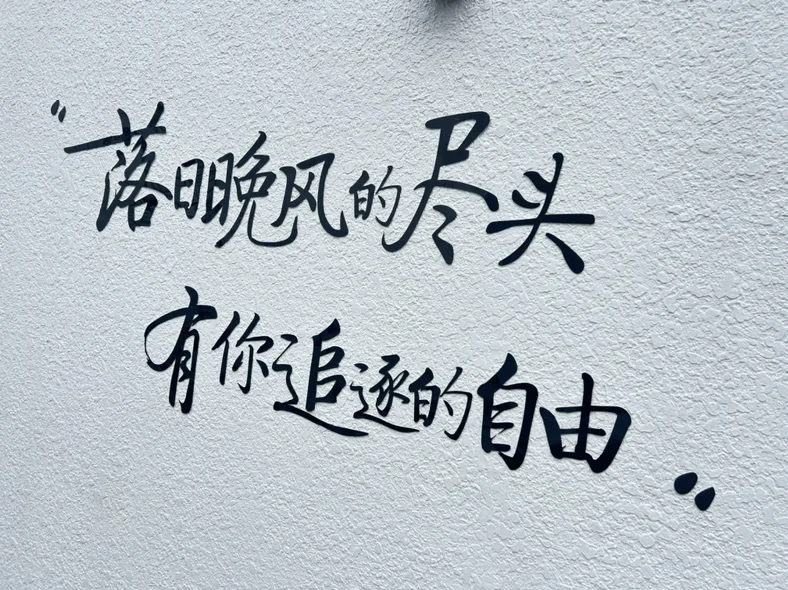 “落日晚风的尽头
有你追逐的自由”